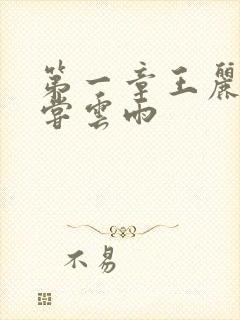 第一章王麗
嘗雲雨
不易